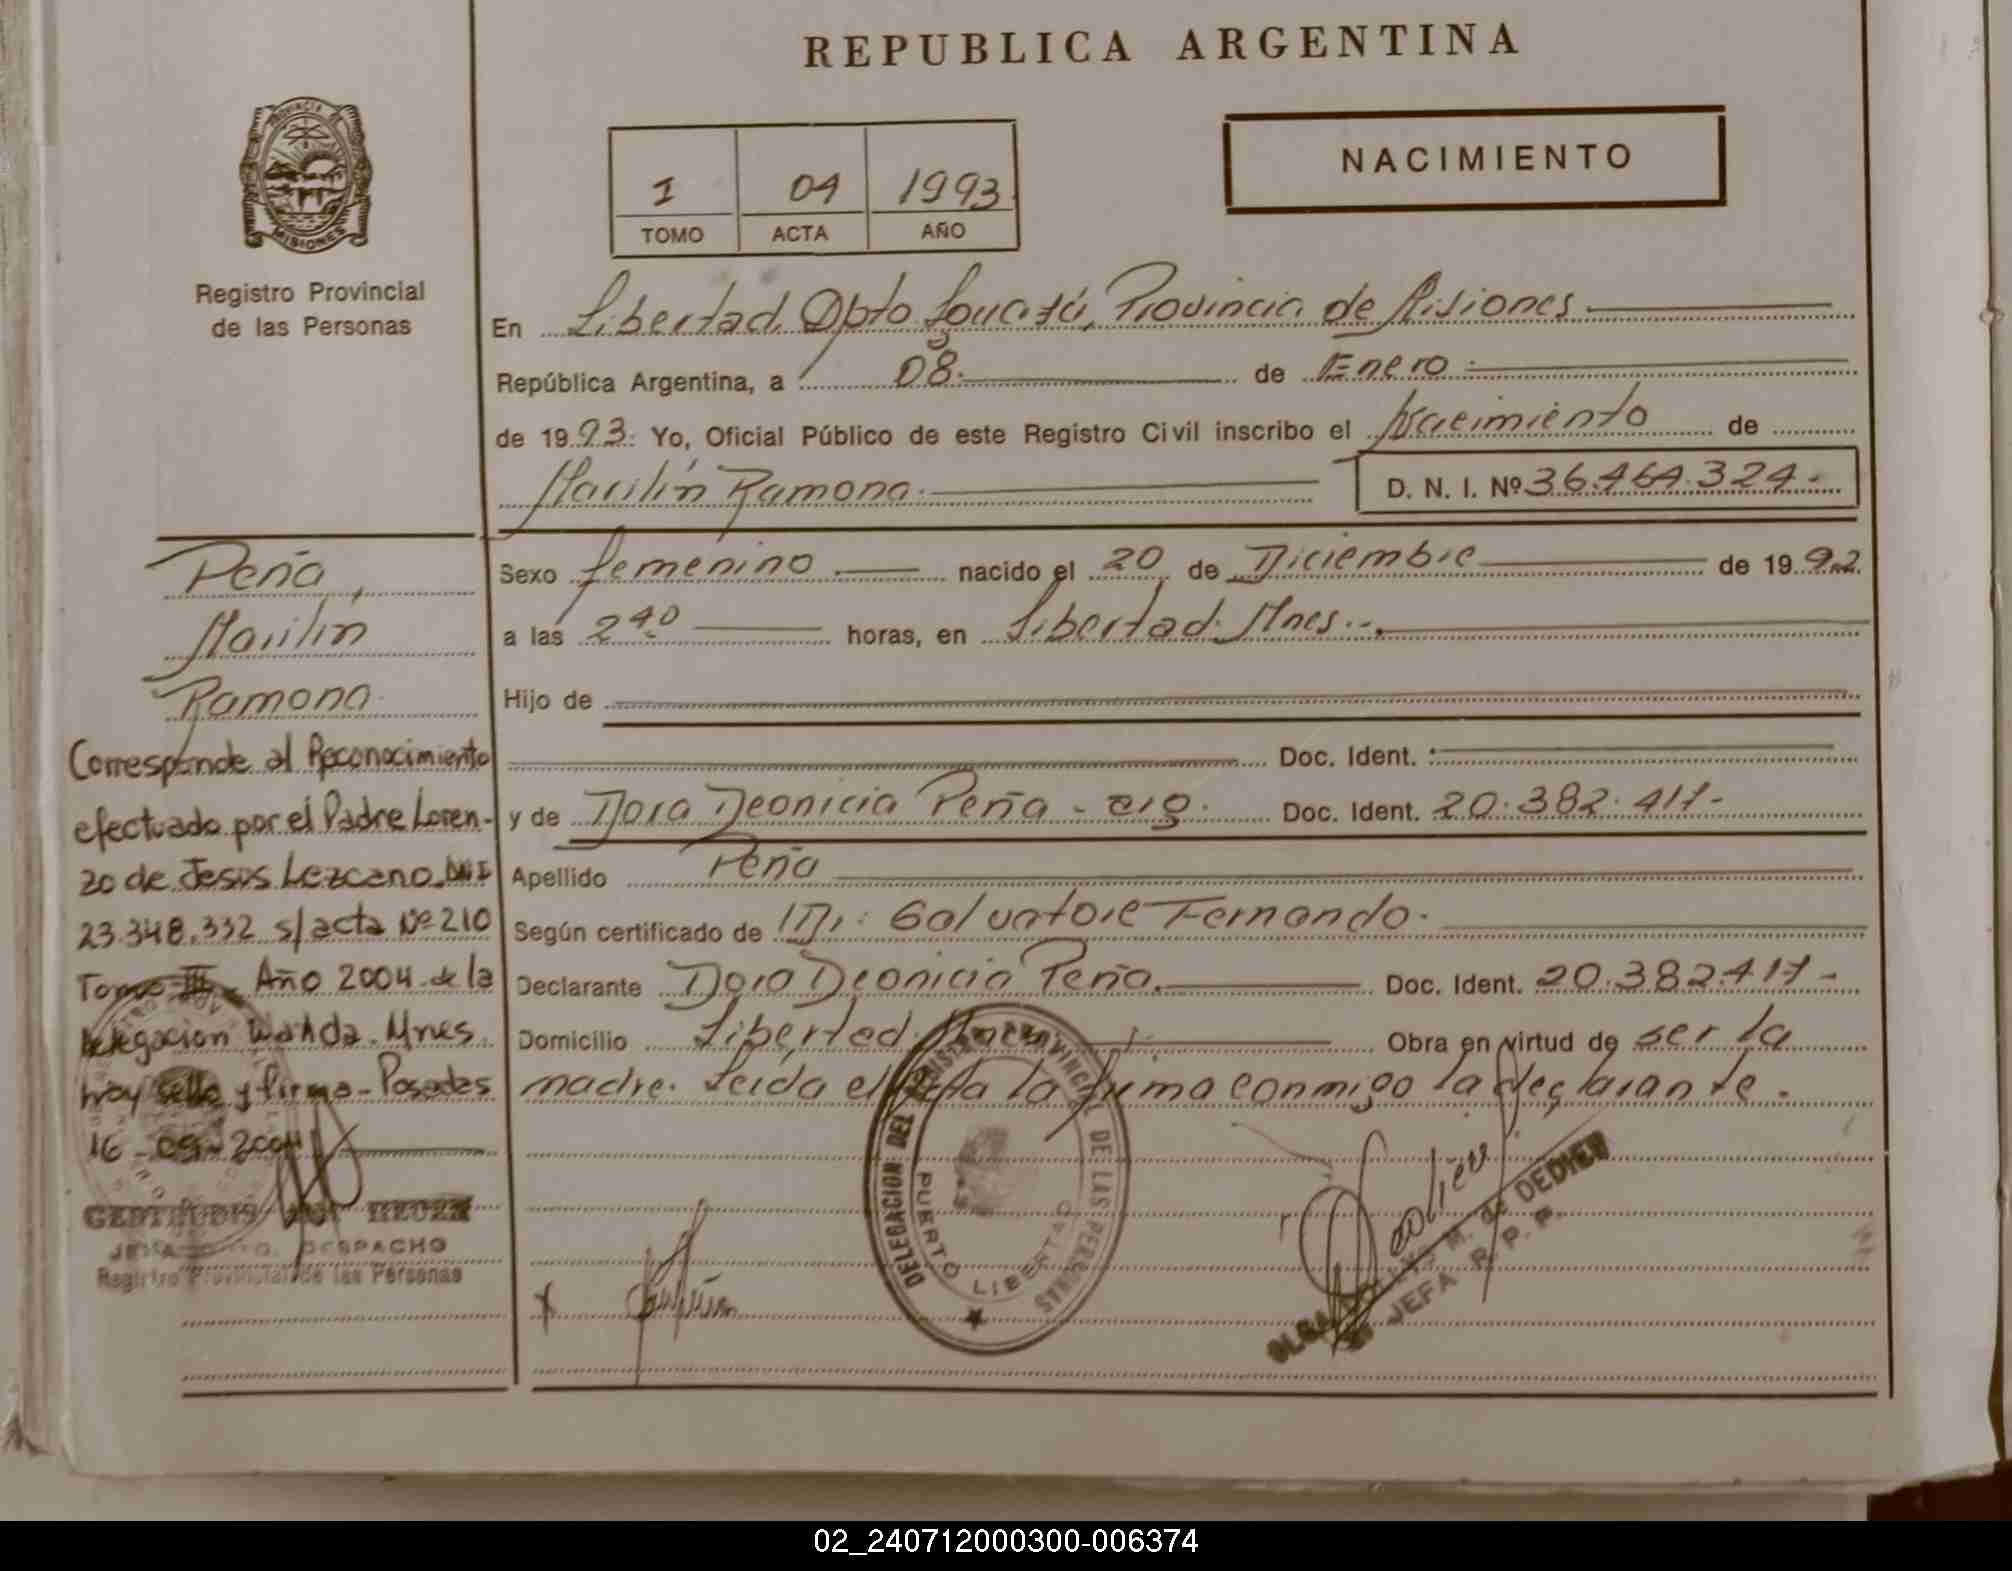 REPUBLICA ARGENTINA
PROVINCIA
MISIONES
Registro Provincial
de las Personas
I 04 1993
TOMO ACTA AÑO
NACIMIENTO
En Libertad Dpto Iguazú, Provincia de Misiones
República Argentina, a 08. de Enero
de 1993. Yo, Oficial Público de este Registro Civil inscribo el Nacimiento de
Marilín Ramona. D. N. I. Nº 36.464.324.-
Sexo femenino nacido el 20 de Diciembre de 1992
a las 2 40 horas, en Libertad. Mnes..
Hijo de
Doc. Ident.
y de Dora Deonicia Peña - arg. Doc. Ident. 20.382.417-
Apellido Peña
Según certificado de Dr: Salvatore Fernando.
Declarante Dora Deonicia Peña. Doc. Ident. 20.382.417-
Domicilio Libertad. Obra en virtud de ser la
madre. Leída el acta la firma conmigo la declarante.
Peña
Marilín
Ramona.
Corresponde al Reconocimiento
efectuado por el Padre Loren-
zo de Jesús Lezcano. DNI
23.348.332 s/acta Nº 210
Tomo III - Año 2004 de la
Delegacion Wanda. Mnes.
hoy sello y firma - Posadas
16 - 09 - 2004
DESPACHO
Registro Provincial de las Personas
DELEGACION DEL REGISTRO PROVINCIAL DE LAS PERSONAS
PUERTO LIBERTAD
M. de DEDIEU
JEFA R. P. P.
02_240712000300-006374